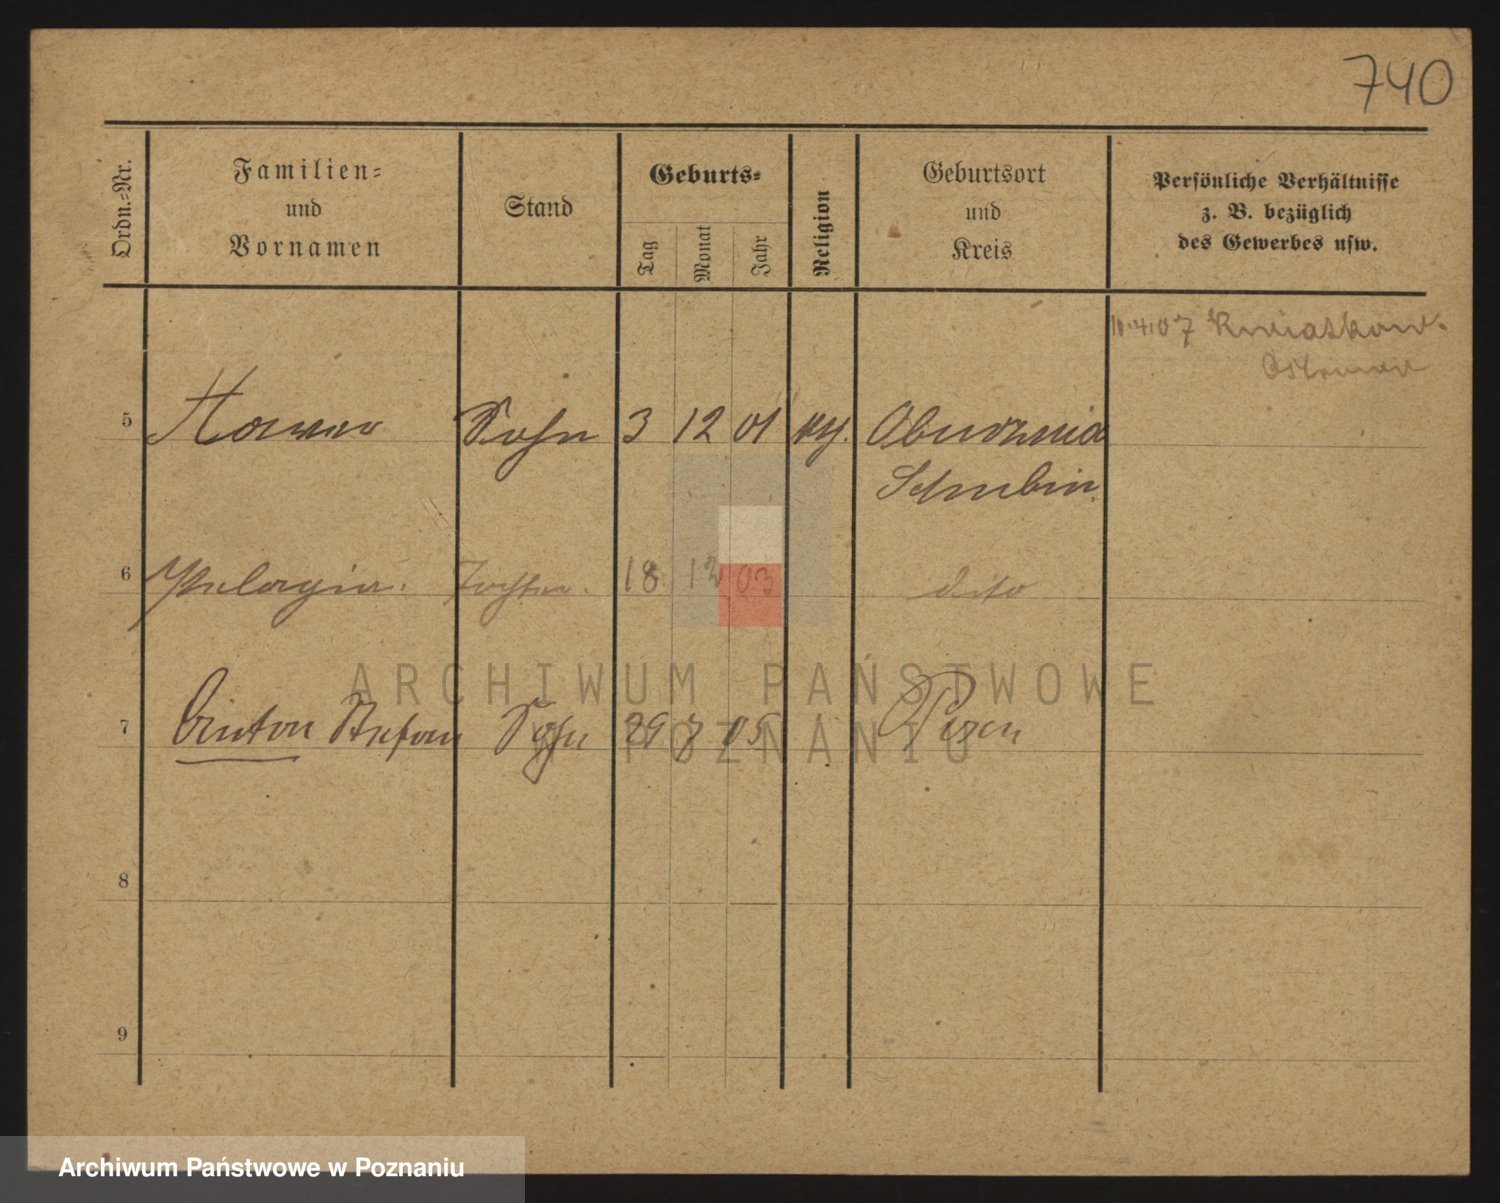 740
Ordn.-Nr.
Familien-
und
Vornamen
Stand
Geburts-
Tag
Monat
Jahr
Religion
Geburtsort
und
Kreis
Persönliche Verhältnisse
z. B. bezüglich
des Gewerbes usw.
10.4.07
5 Sohn 3 12 01
Schubin
6 Pelagia. Tochter. 18 12 03 dito
7 Anton Stefan Sohn 29 05 Posen
8
9
ARCHIWUM PAŃSTWOWE
W POZNANIU
Archiwum Państwowe w Poznaniu